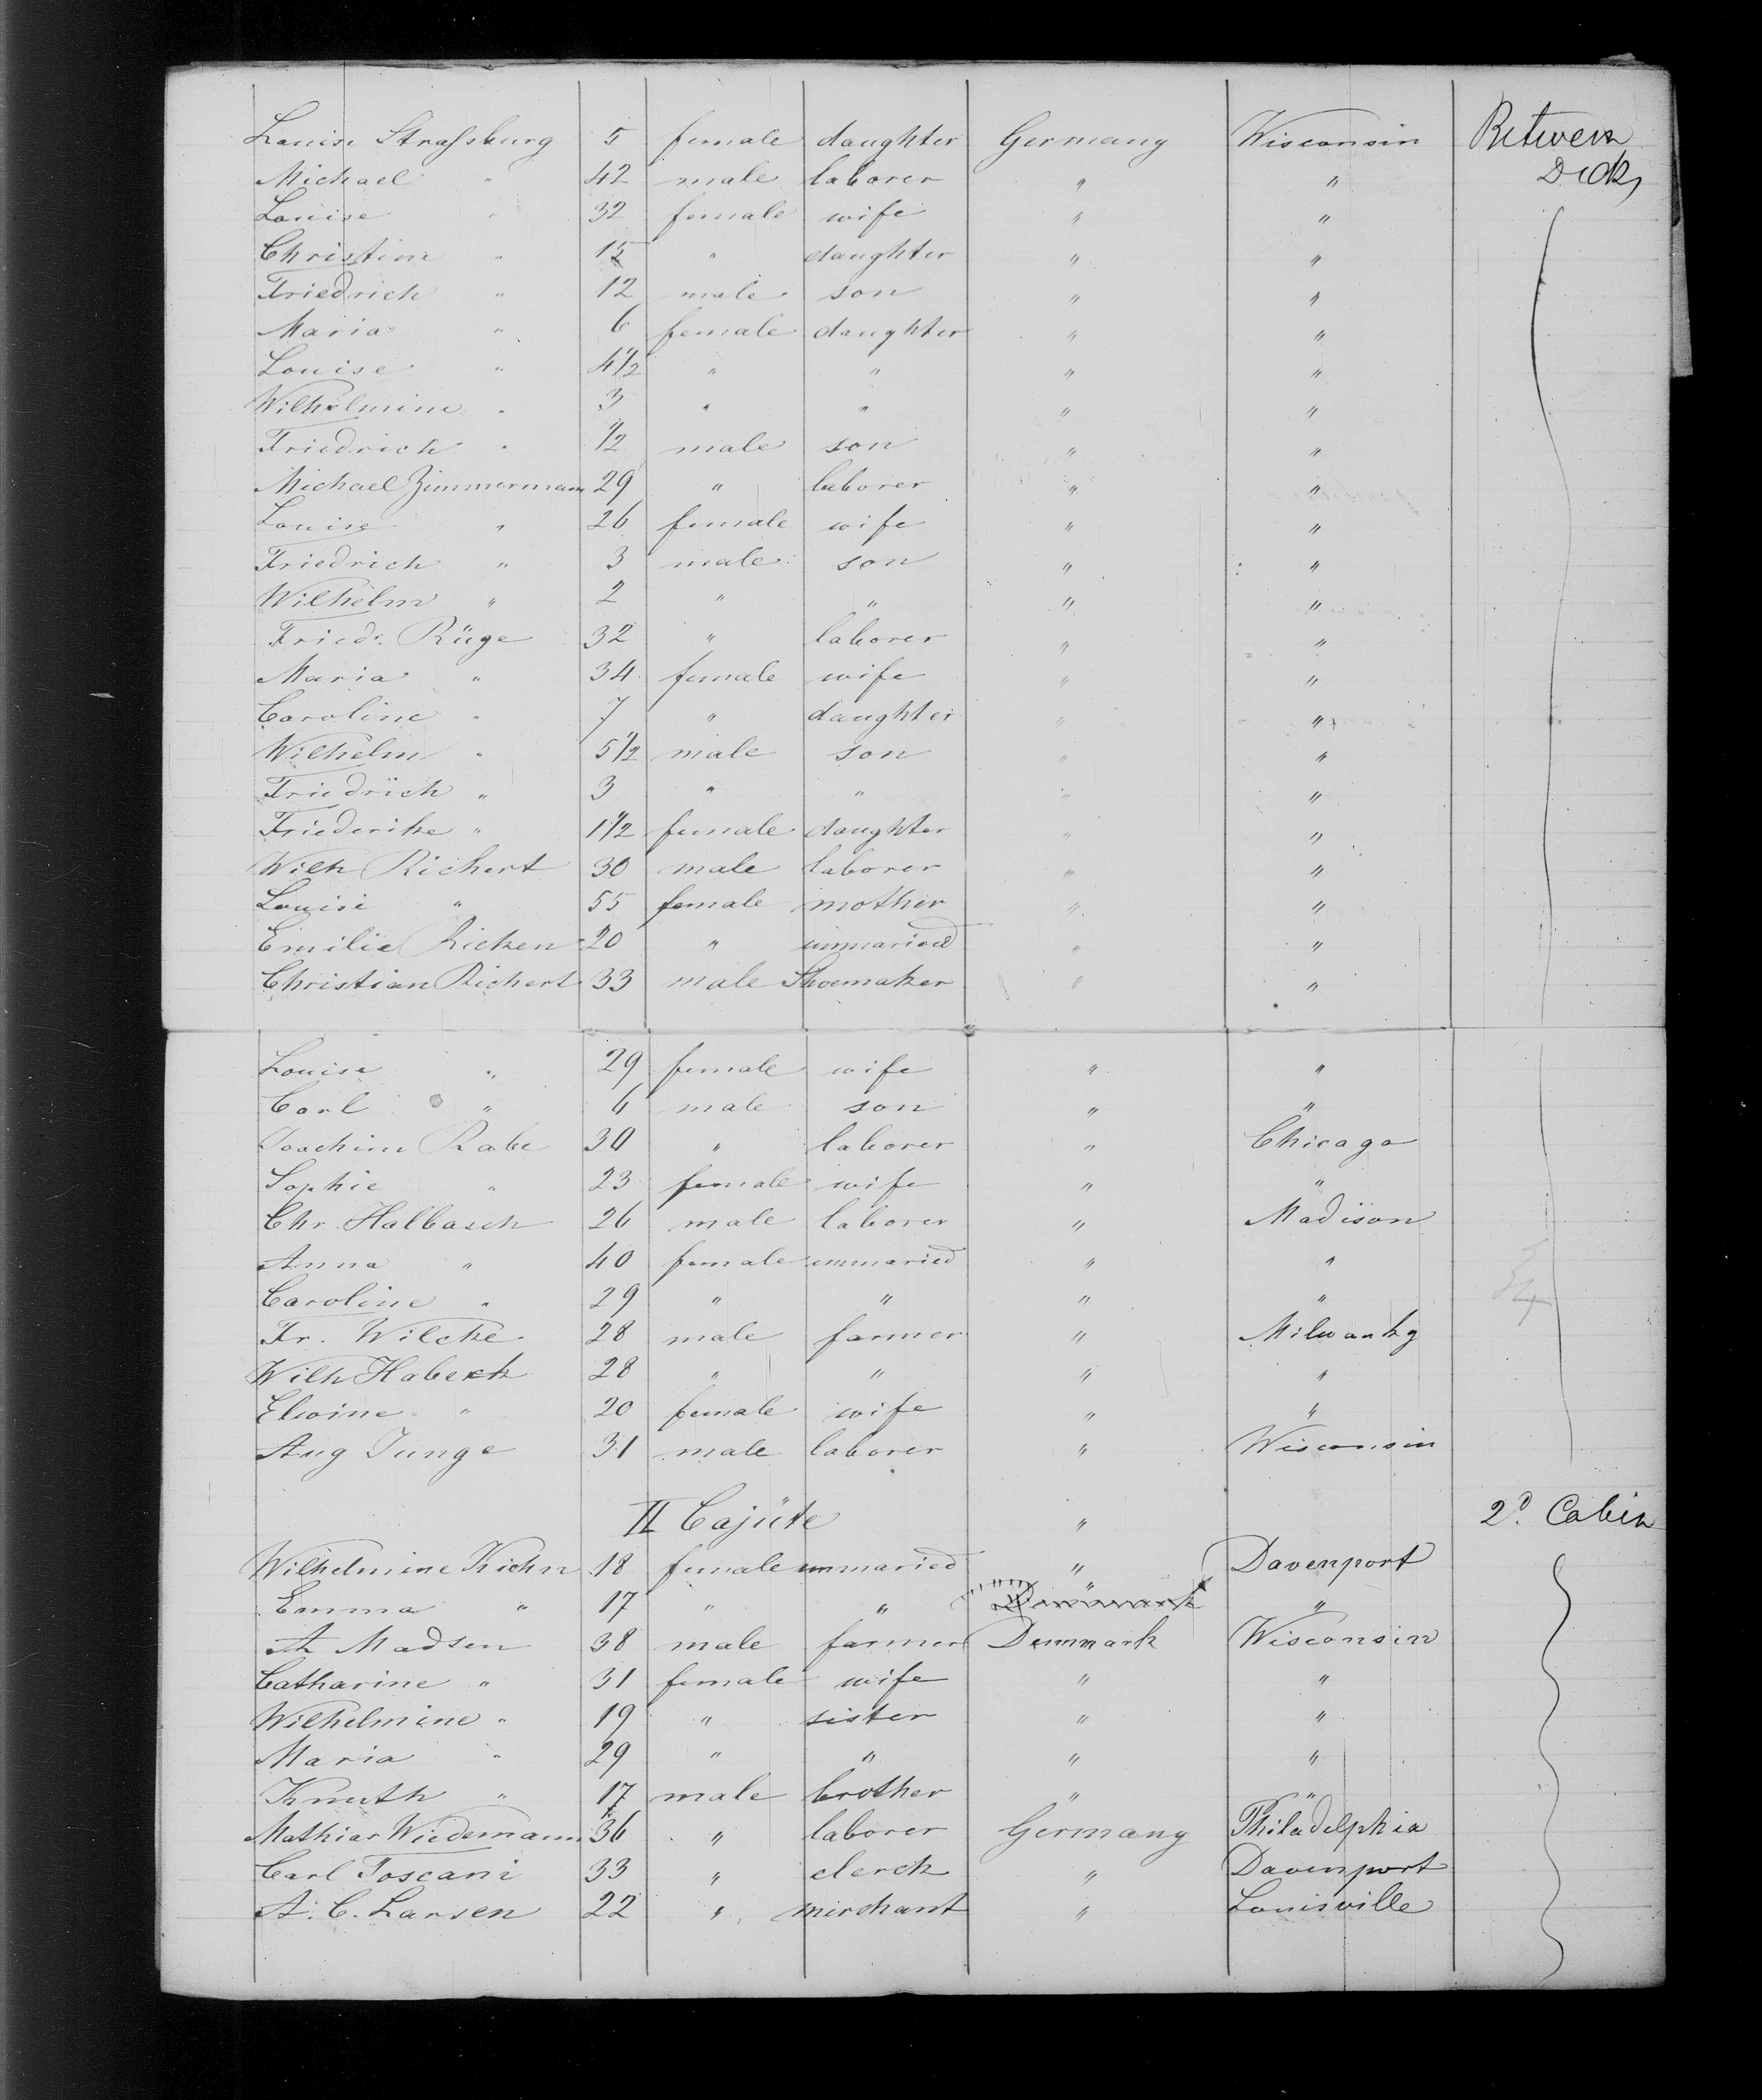 Louise Strassburg 5 female daughter Germany Wisconsin Between
Michael " 42 male laborer " " Deck
Louise " 32 female wife " "
Christine " 15 " daughter " "
Friedrich " 12 male son " "
Maria " 6 female daughter " "
Louise " 4 1/2 " " " "
Wilhelmine " 3 " " " "
Friedrich " 1/2 male son " "
Michael Zimmermann 29 " laborer " "
Louise " 26 female wife " "
Friedrich " 3 male son " "
Wilhelm " 2 " " " "
Friedr. Rüge 32 " laborer " "
Maria " 34 female wife " "
Caroline " 7 " daughter " "
Wilhelm " 5 1/2 male son " "
Friedrich " 3 " " " "
Friederike " 1 1/2 female daughter " "
Wilh Richert 30 male laborer " "
Louise " 55 female mother " "
Emilie Ricken 20 " unmaried " "
Christian Richert 33 male Shoemaker " "
Louise " 29 female wife " "
Carl " 6 male son " "
Joachim Rabe 30 " laborer " Chicago
Sophie " 23 female wife " "
Chr. Halbasch 26 male laborer " Madison
Anna " 40 female unmaried " "
Caroline " 29 " " " "
Fr. Wilcke 28 male farmer " Milwauky
Wilh Habeck 28 " " " "
Elwine " 20 female wife " "
Aug Junge 31 male laborer " Wisconsin
II Cajüte " 2d. Cabin
Wilhelmine Kichn 18 female unmaried " Davenport
Emma " 17 " " " "
A Madsen 38 male farmer Denmark Wisconsin
Catharine " 31 female wife " "
Wilhelmine " 19 " sister " "
Maria " 29 " " " "
Knuth " 17 male brother " "
Mathias Wiedemann 36 " laborer Germany Philadelphia
Carl Toscani 33 " clerck " Davenport
A. C. Larsen 22 " mirchant " Louisville